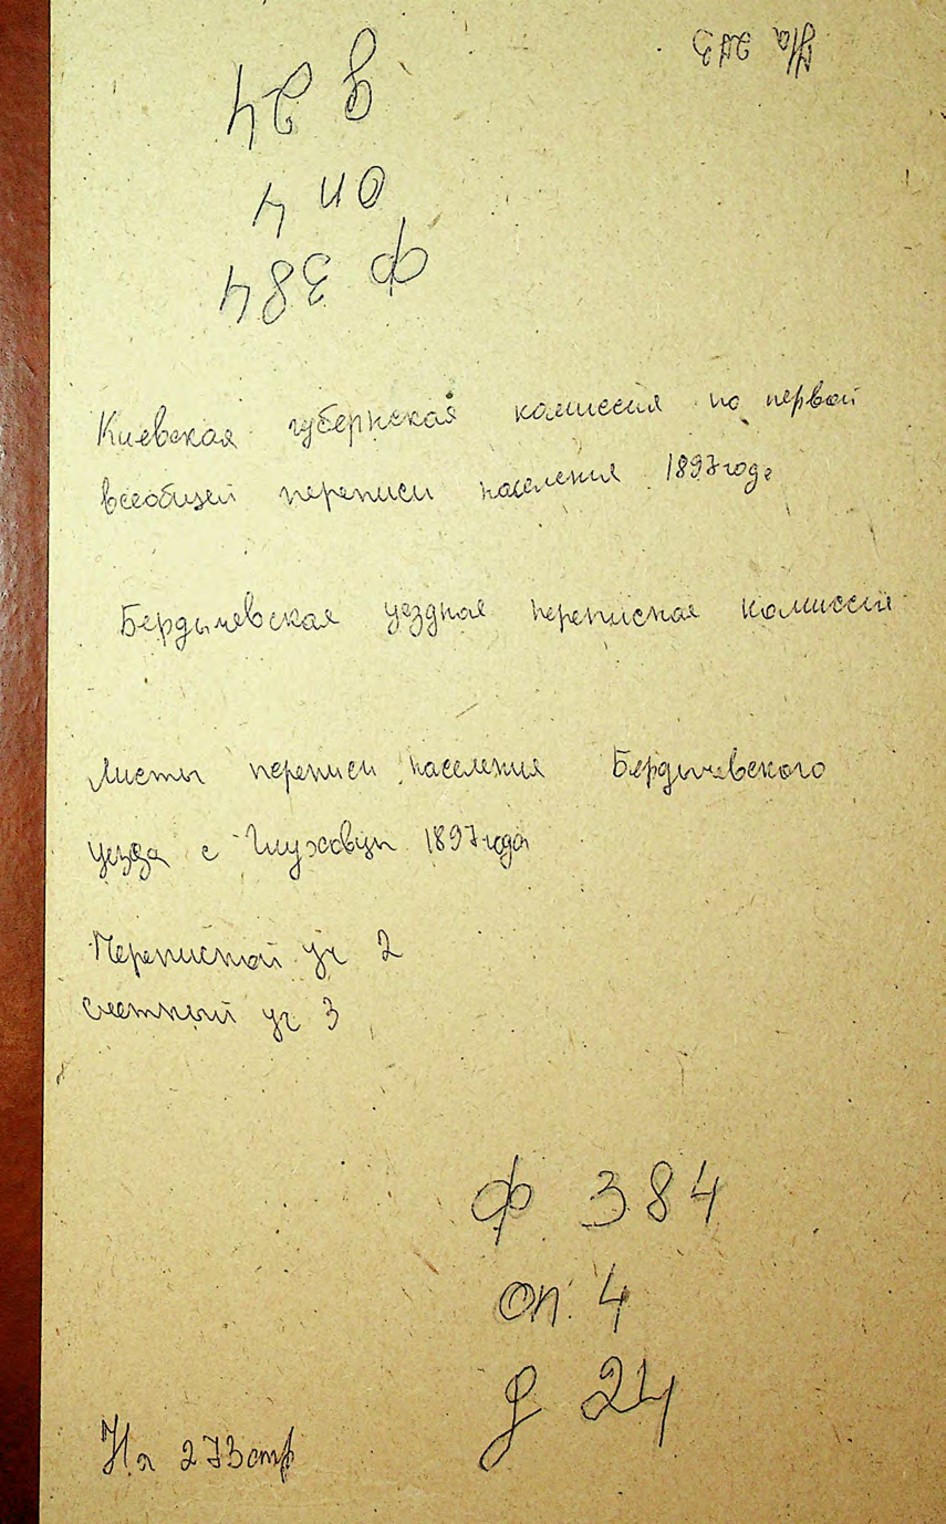 На 273
д 24
оп 4
ф 384
Киевская губернская комиссия по первой
всеобщей переписи населения 1897 года
Бердычевская уездная переписная комиссия
Листы переписи населения Бердычевского
уезда с Глуховцы 1897 года
Переписной уч 2
счетный уч 3
ф 384
оп. 4
д 24
На 273 стр